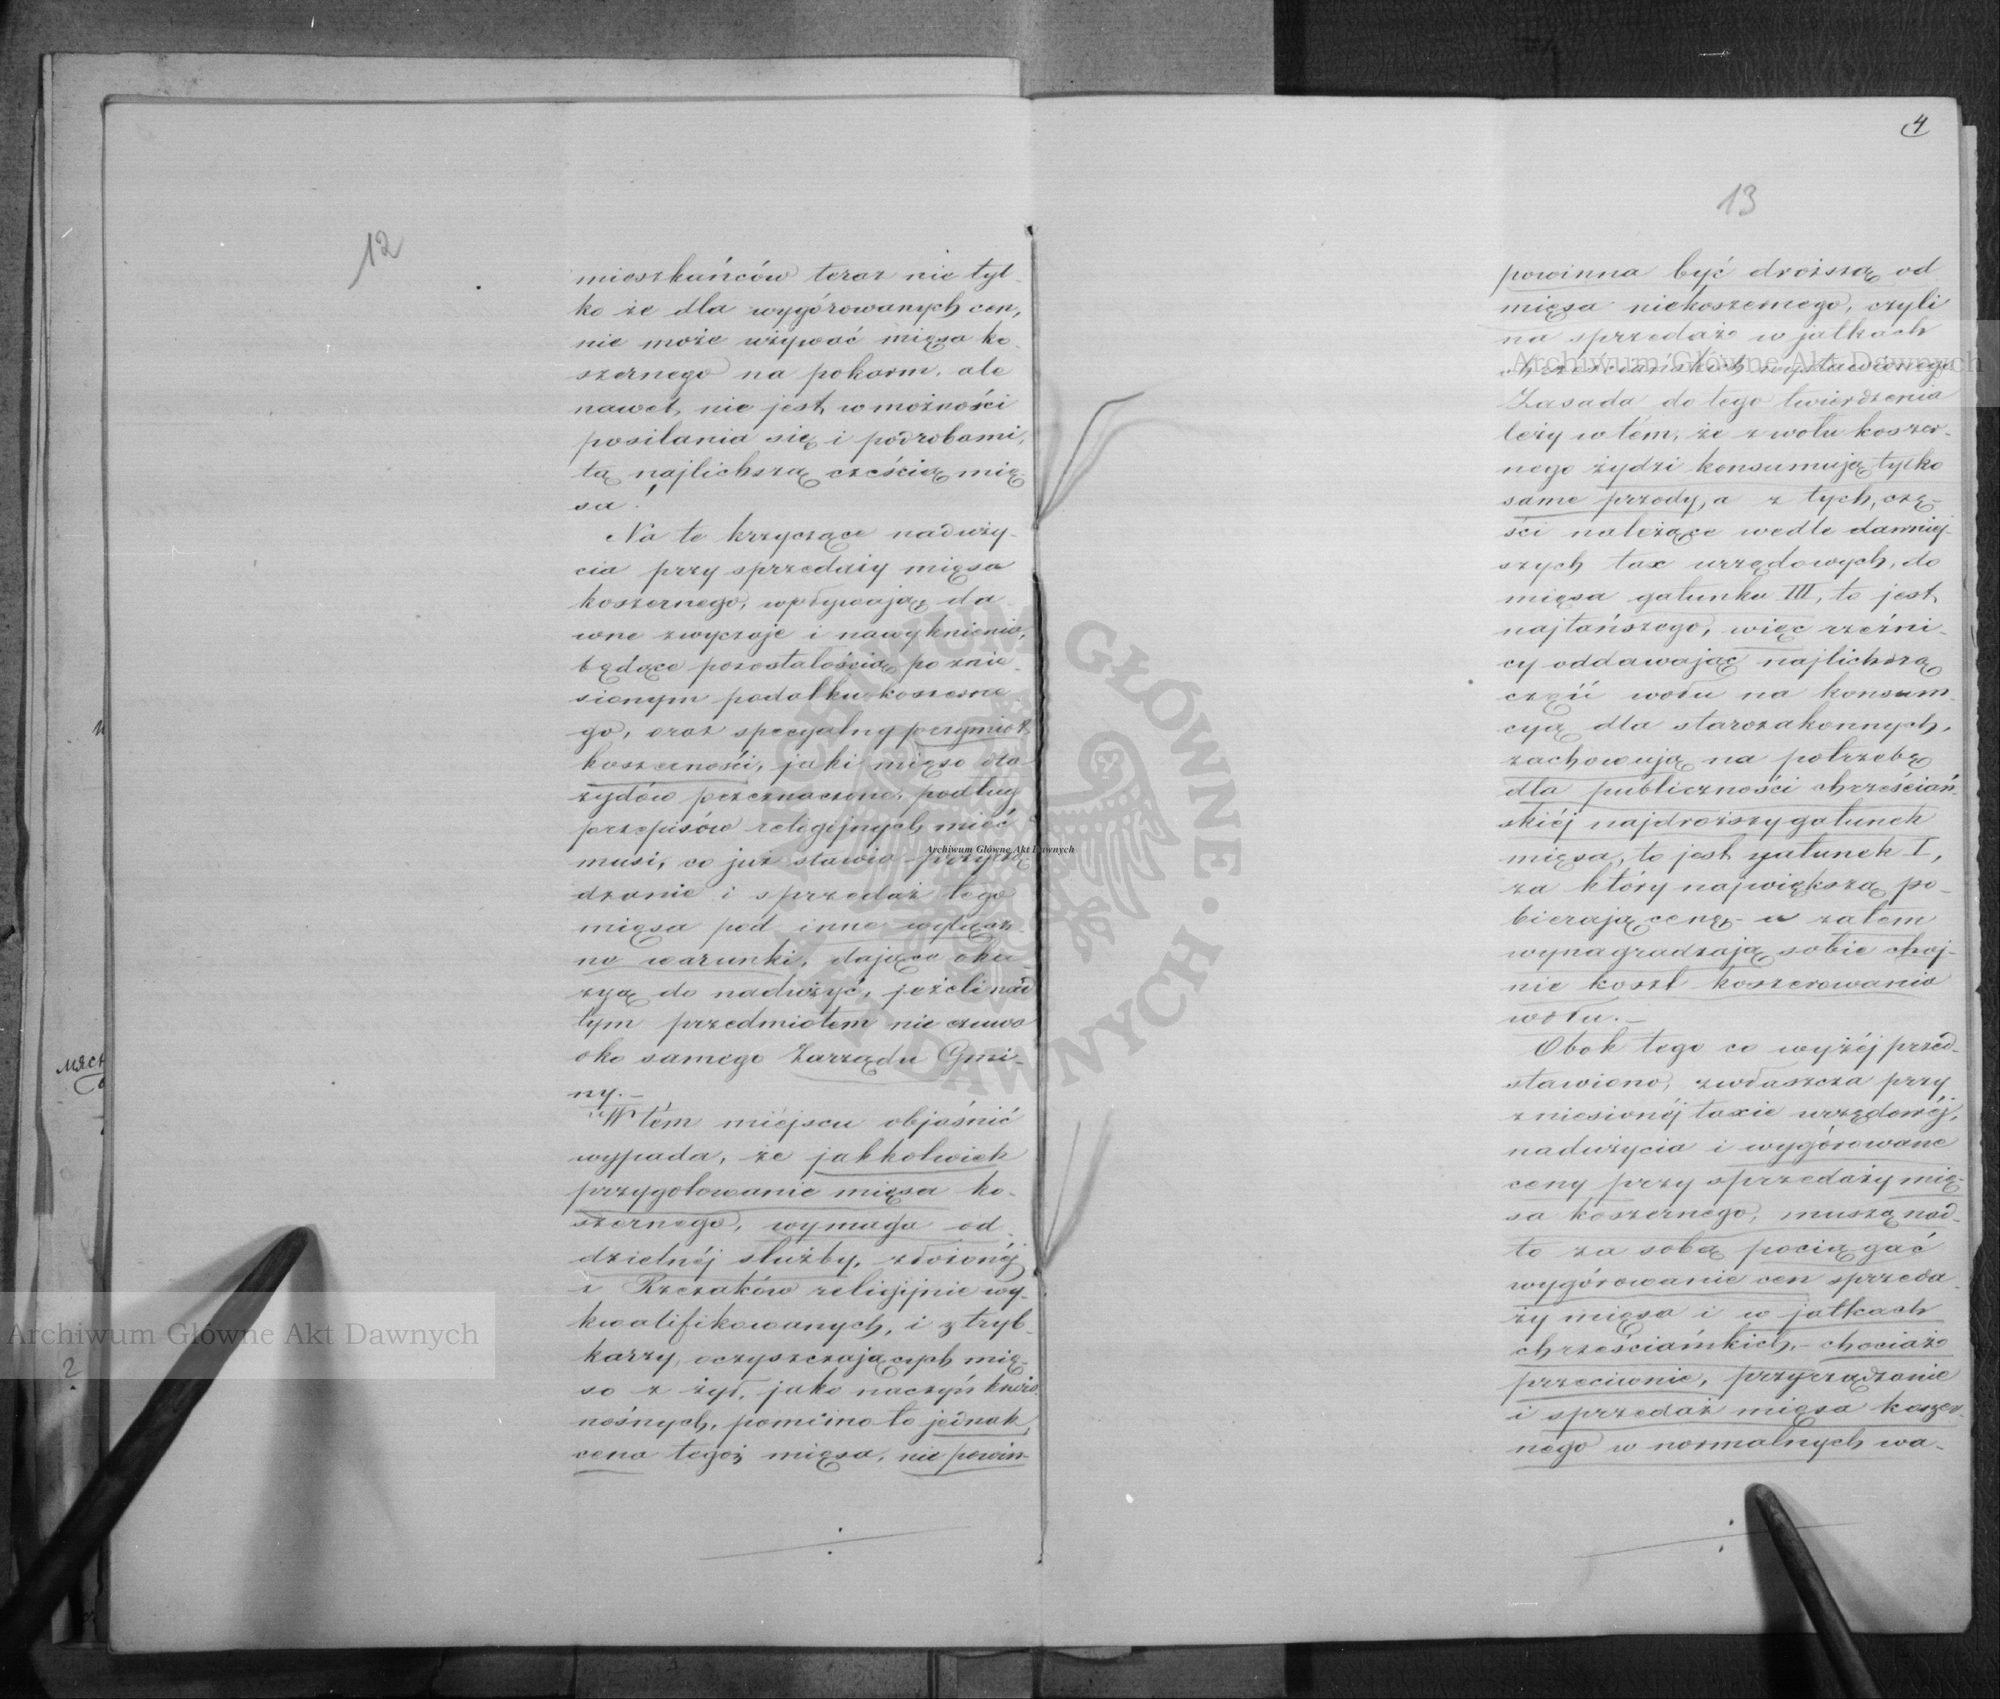 12
mieszkańców teraz nie tyl-
ko że dla wygórowanych cen,
nie może używać mięsa ko-
szernego na pokarm, ale
nawet nie jest w możności
posilania się i podrobami,
tą najlichszą cześcią mię-
sa!
Na te krzyczące naduży-
cia przy sprzedaży mięsa
koszernego, wpływają da-
wne zwyczaje i nawyknienia,
będące pozostałością po znie-
sionym podatku koszerne-
go, oraz specyalny przymiot
koszerności, jaki mięso dla
żydów przeznaczone, podług
przepisów religijnych mieć
musi, co już stawia przyrzą-
dzanie i sprzedaż tego
mięsa pod inne wyłącz-
ne warunki, dające oka-
zyą do nadużyć, jeżeli nad
tym przedmiotem nie czuwa
oko samego Zarządu Gmi-
ny.—
W tém miéjscu objaśnić
wypada, że jakkolwiek
przygotowanie mięsa ko-
szernego, wymaga od-
dzielnéj służby, złożonéj
z Rzezaków religijnie wy-
kwalifikowanych, i z tryb-
karzy, oczyszczających mię-
so z żył, jako naczyń krwio-
nośnych, pomimo to jednak,
cena tegoż mięsa, nie powin-
4
13
powinna być droższą od
mięsa niekoszernego, czyli
na sprzedaż w jatkach
chrześciańskich wystawionego
Zasada do tego twierdzenia
leży w tém, że z wołu koszer-
nego żydzi konsumują tylko
same przody, a z tych, czę-
ści należące wedle dawniej-
szych tax urzędowych, do
mięsa gatunku III, to jest
najtańszego, więc rzeźni-
cy oddawając najlichszą
część wołu na konsum-
cyą dla starozakonnych,
zachowują na potrzebę
dla publiczności chrześciań-
skiéj najdroższy gatunek
mięsa, to jest gatunek I,
za który największą po-
bierają cenę, a zatem
wynagradzają sobie choj-
nie koszt koszerowania
wołu.—
Obok tego co wyżéj przed-
stawiono, zwłaszcza przy
zniesionéj taxie urzędowéj,
nadużycia i wygórowane
ceny przy sprzedaży mię-
sa koszernego, muszą nad-
to za sobą pociągać
wygórowanie cen sprzeda-
ży mięsa i w jatkach
chrześciańkich,- chociaże
przeciwnie, przyrządzanie
i sprzedaż mięsa koszer-
nego w normalnych wa-
мяса
?
Archiwum Główne Akt Dawnych
Archiwum Główne Akt Dawnych
Archiwum Główne Akt Dawnych